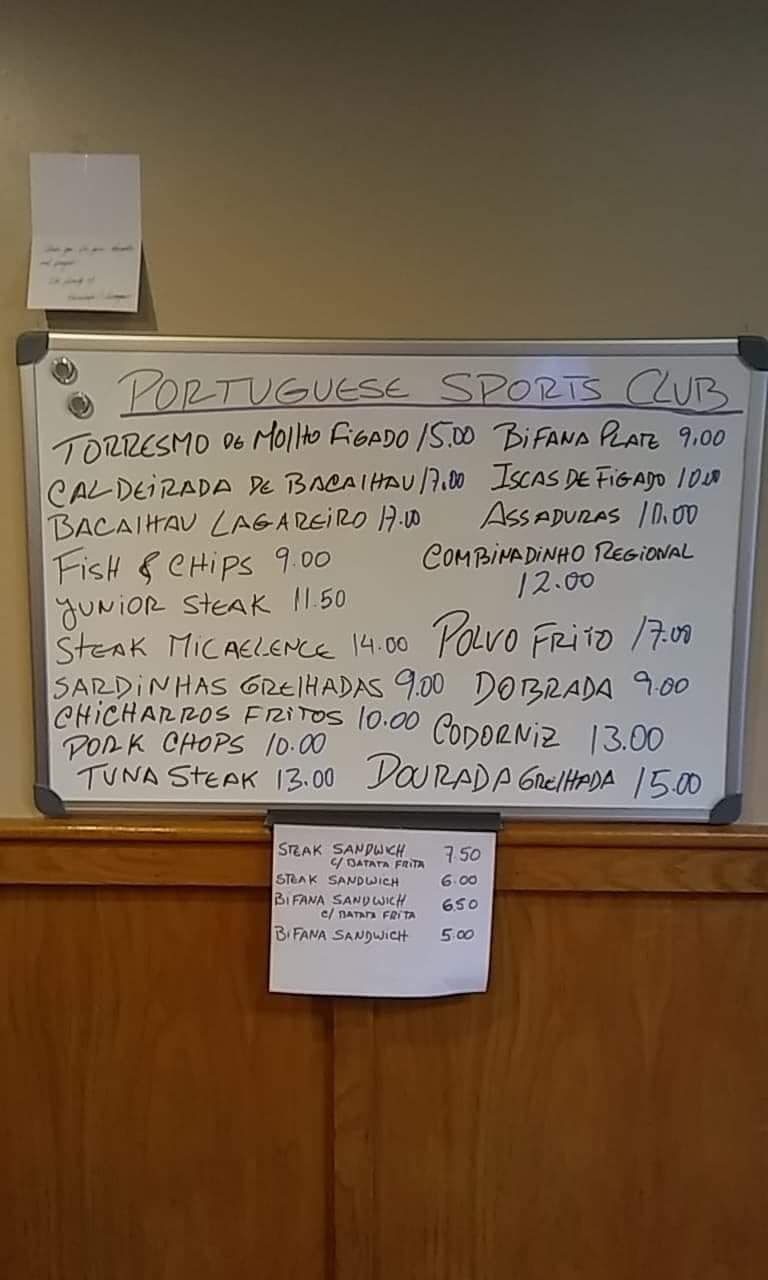 PORTUGUESE SPORTS CLUB
TORRESMO DE MOLHO FIGADO 15.00
CALDEIRADA DE BACALHAU 17.00
BACALHAU LAGAREIRO 17.00
FISH & CHIPS 9.00
JUNIOR STEAK 11.50
STEAK MICAELENCE 14.00
SARDINHAS GRELHADAS 9.00
CHICHARROS FRITOS 10.00
PORK CHOPS 10.00
TUNA STEAK 13.00
BIFANA PLATE 9.00
ISCAS DE FIGADO 10.00
ASSADURAS 10.00
COMBINADINHO REGIONAL
12.00
POLVO FRITO 17.00
DOBRADA 9.00
CODORNIZ 13.00
DOURADA GRELHADA 15.00
STEAK SANDWICH 7.50
C/ BATATA FRITA
STEAK SANDWICH 6.00
BIFANA SANDWICH 6.50
C/ BATATA FRITA
BIFANA SANDWICH 5.00